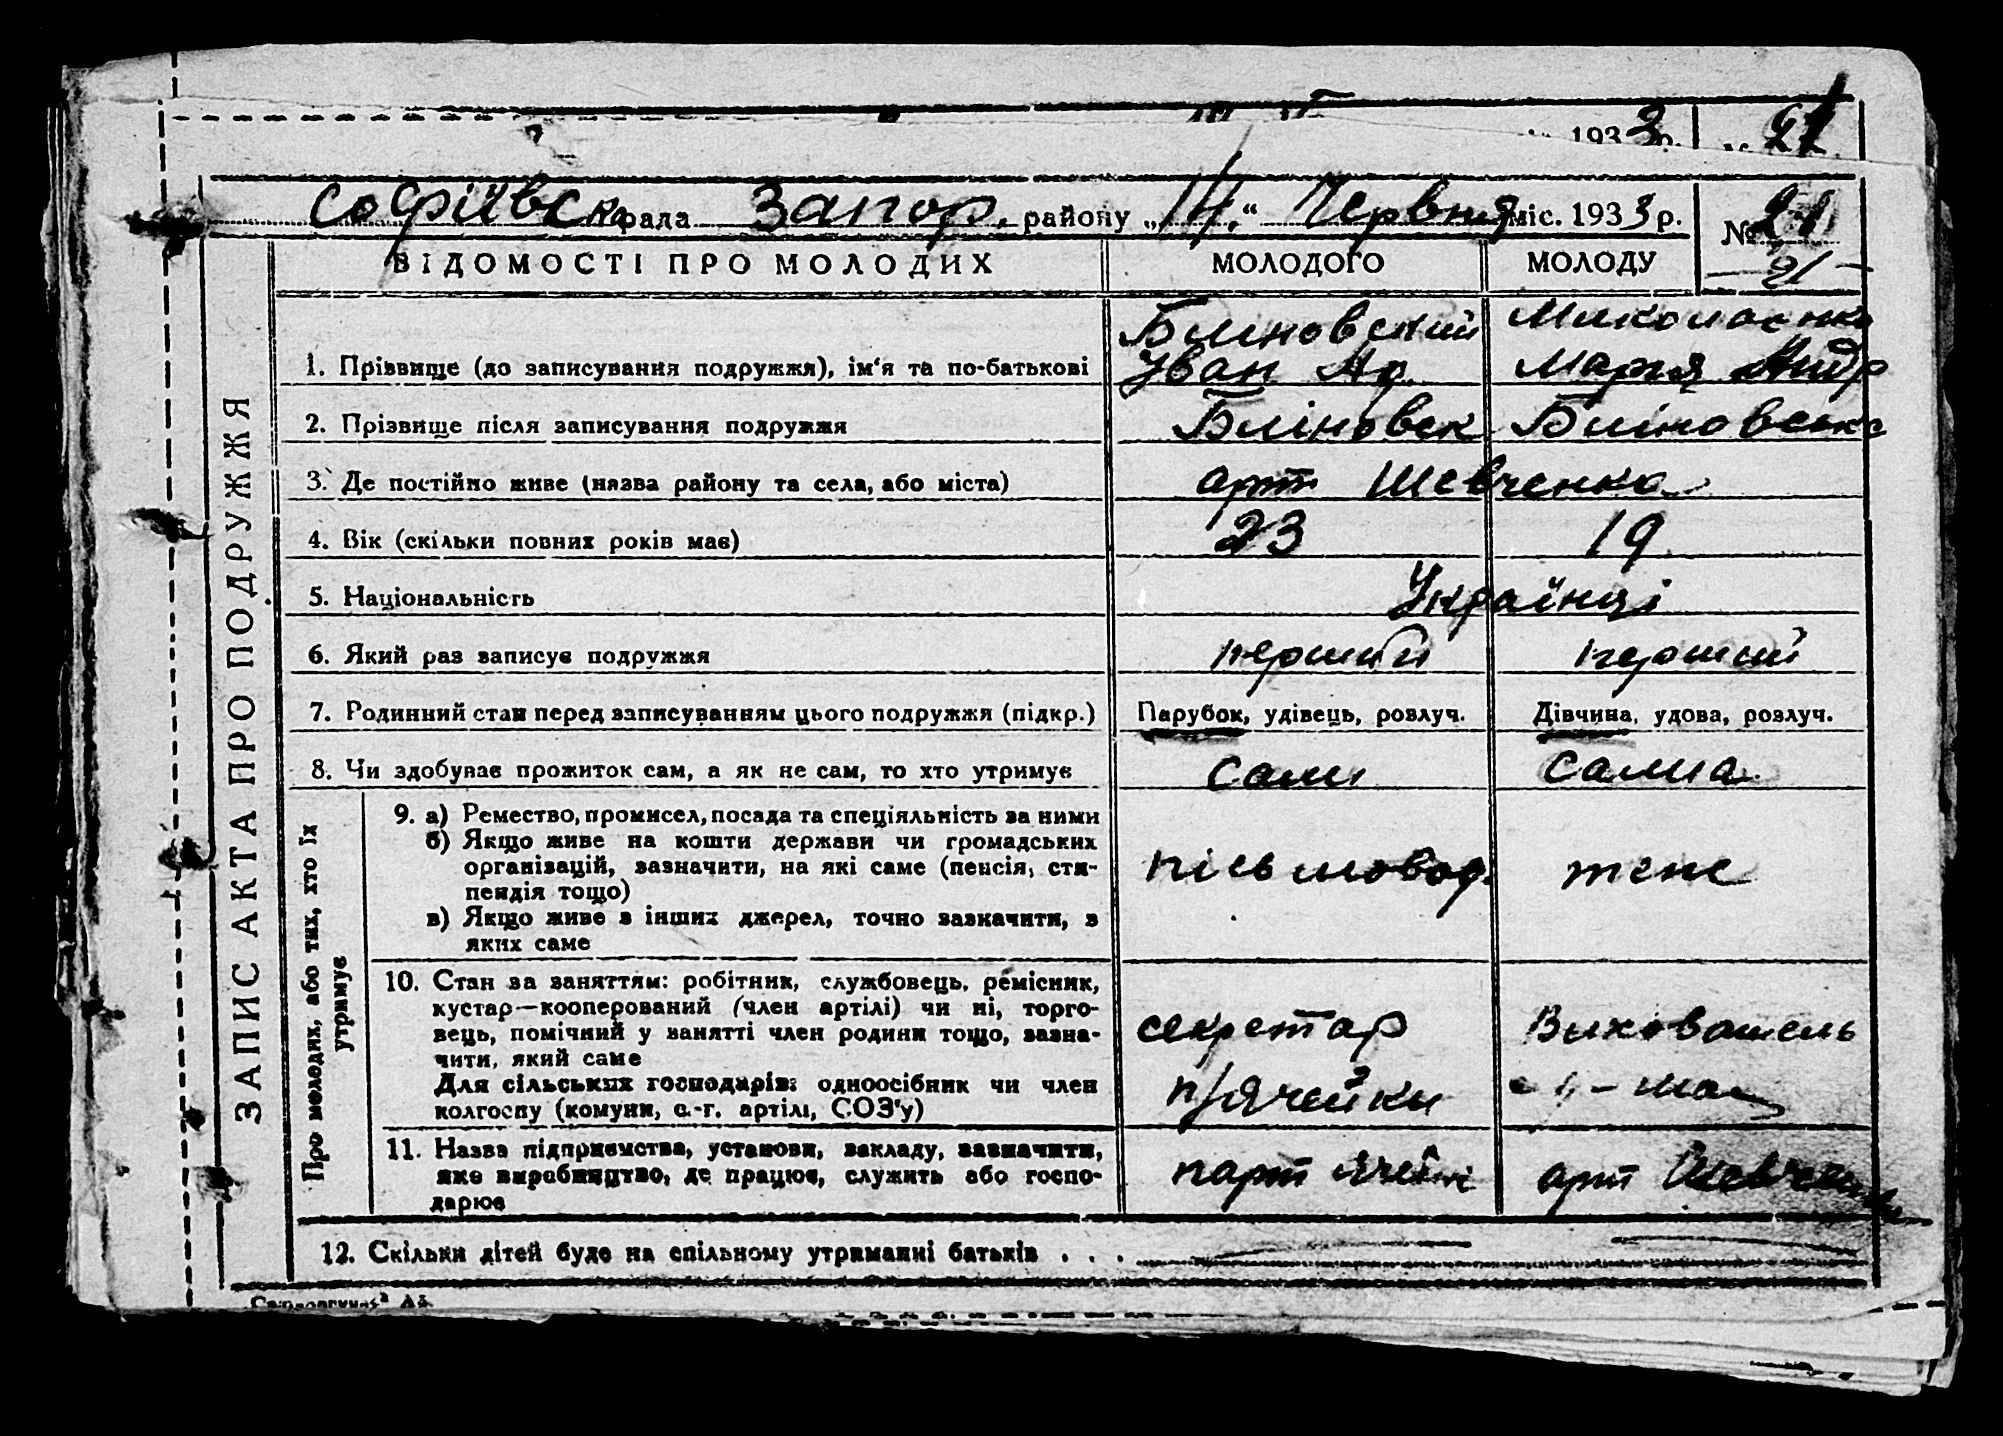 1933 р. 21
Софіївськ рада Запор. району „14.“ Червня міс. 1933 р. № 21
ВІДОМОСТІ ПРО МОЛОДИХ МОЛОДОГО МОЛОДУ 21
ЗАПИС АКТА ПРО ПОДРУЖЖЯ
Бліновский Миколаенко
1. Прізвище (до записування подружжя), ім‘я та по-батькові Іван Мария Андр
2. Прізвище після записування подружжя Бліновск Бліновська
3. Де постійно живе (назва району та села, або міста) арт Шевченка
4. Вік (скільки повних років має) 23 19
5. Національність Українці
6. Який раз записує подружжя перший перший
7. Родинний стан перед записуванням цього подружжя (підкр.) Парубок, удівець, розлуч. Дівчина, удова, розлуч.
8. Чи здобуває прожиток сам, а як не сам, то хто утримує сам сама
Про молодих, або тих, хто їх
утримує
9. а) Ремество, промисел, посада та спеціяльність за ними
б) Якщо живе на кошти держави чи громадських
організацій, зазначити, на які саме (пенсія, сти-
пендія тощо)
в) Якщо живе з інших джерел, точно зазначити, з
яких саме
письмовод.
10. Стан за заняттям: робітник, службовець, ремісник,
кустар—кооперований (член артілі) чи ні, торго-
вець, помічний у занятті член родини тощо, зазна-
чити, який саме
Для сільських господарів: одноосібник чи член
колгоспу (комуни, с.-г. артілі, СОЗ'у)
секретар
п/ячейки
Выхователь
11. Назва підприємства, установи, закладу, зазначити,
яке виробництво, де працює, служить або госпо-
дарює
парт ячейкі арт Шевченка
12. Скільки дітей буде на спільному утриманні батьків . . .